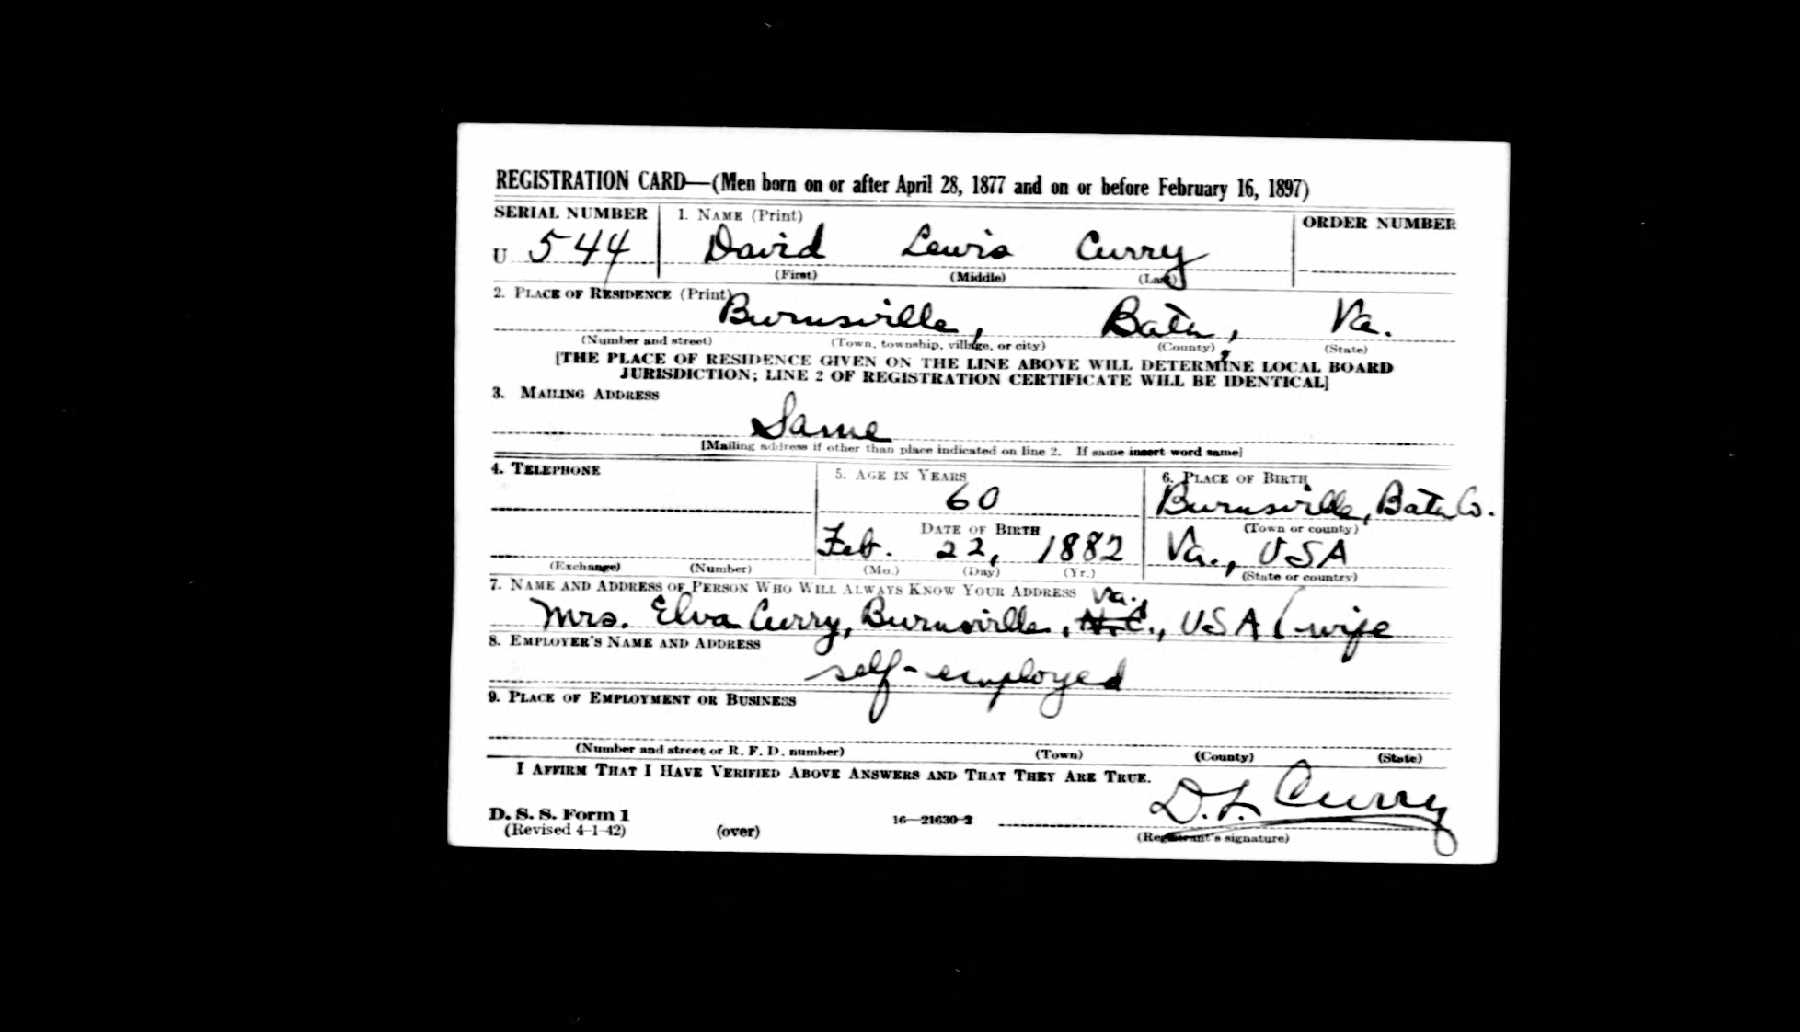 REGISTRATION CARD—(Men born on or after April 28, 1877 and on or before February 16, 1897)
SERIAL NUMBER 1. NAME (Print) ORDER NUMBER
U 544 David Lewis Curry
(First) (Middle) (Last)
2. PLACE OF RESIDENCE (Print)
Burnsville, Bath, Va.
(Number and street) (Town, township, village, or city) (County) (State)
[THE PLACE OF RESIDENCE GIVEN ON THE LINE ABOVE WILL DETERMINE LOCAL BOARD
JURISDICTION; LINE 2 OF REGISTRATION CERTIFICATE WILL BE IDENTICAL]
3. MAILING ADDRESS
Same
[Mailing address if other than place indicated on line 2. If same insert word same]
4. TELEPHONE 5. AGE IN YEARS 6. PLACE OF BIRTH
60 Burnsville, Bath Co.
DATE OF BIRTH (Town or county)
Feb. 22, 1882 Va., USA
(Exchange) (Number) (Mo.) (Day) (Yr.) (State or country)
7. NAME AND ADDRESS OF PERSON WHO WILL ALWAYS KNOW YOUR ADDRESS Va.
Mrs. Elva Curry, Burnsville, N.C., USA (wife
8. EMPLOYER'S NAME AND ADDRESS
self-employed
9. PLACE OF EMPLOYMENT OR BUSINESS
(Number and street or R. F. D. number) (Town) (County) (State)
I AFFIRM THAT I HAVE VERIFIED ABOVE ANSWERS AND THAT THEY ARE TRUE.
D. L. Curry
D. S. S. Form 1
(Revised 4-1-42) (over) 16—21630-2 (Registrant's signature)